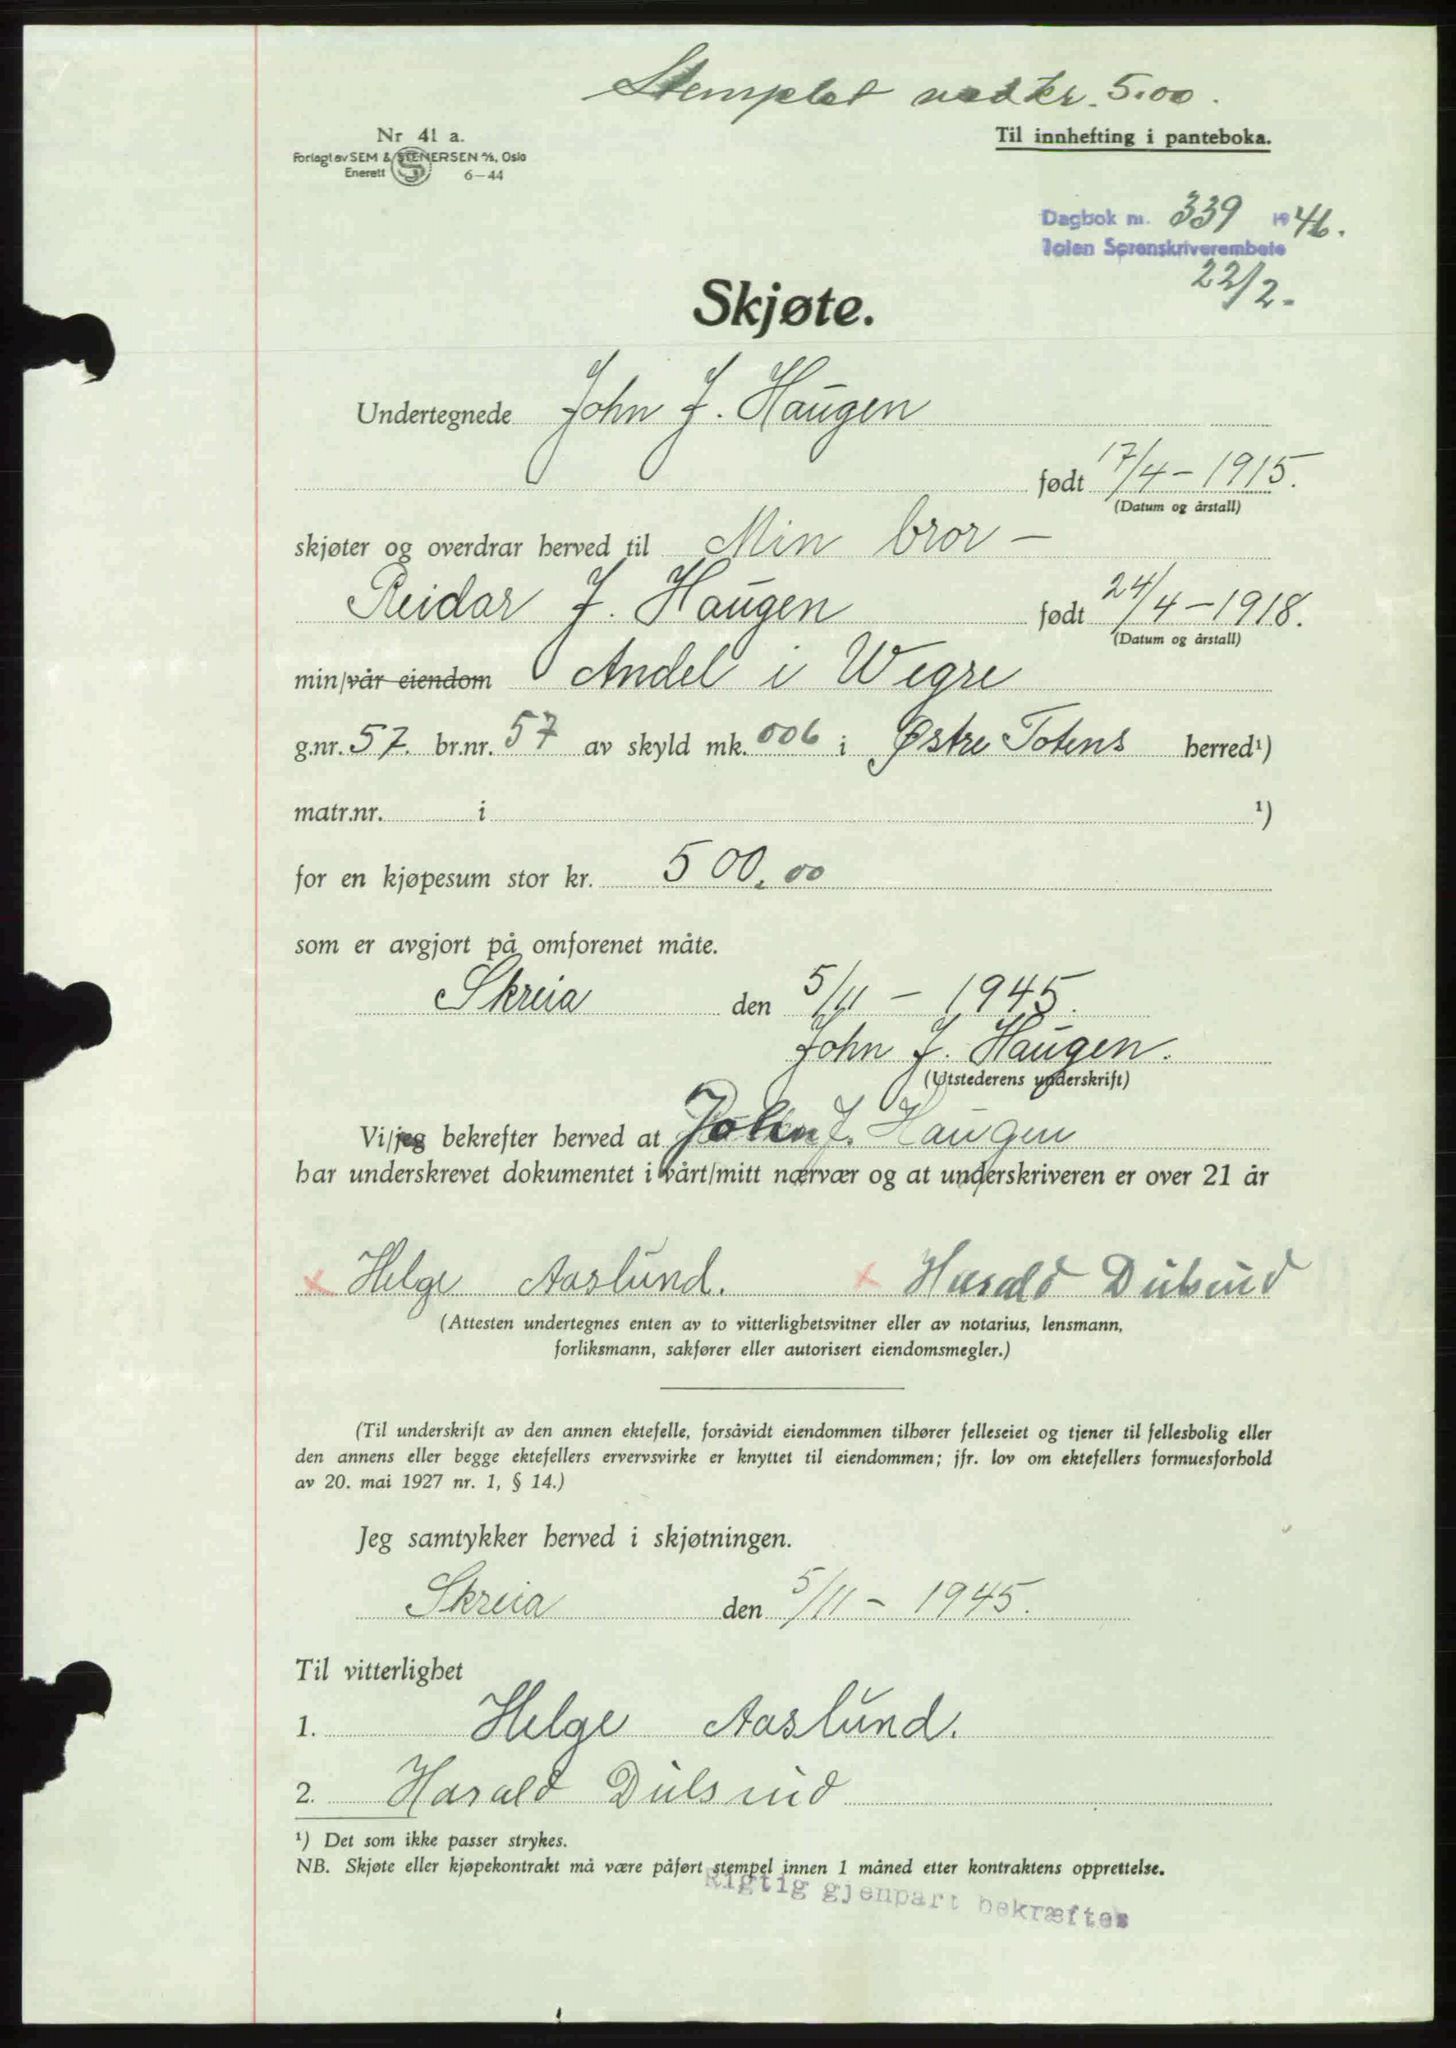 Stemplet med kr. 5.00.
Nr 41 a.
Forlagt av SEM & STENERSEN A/S, Oslo
Enerett 6-44
Til innhefting i panteboka.
Dagbok nr. 339 1946.
Toten Sorenskriverembete
22/2.
Skjøte.
Undertegnede John J. Haugen
født 17/4-1915.
(Datum og årstall)
skjøter og overdrar herved til Min bror -
Reidar J. Haugen født 24/4-1918.
(Datum og årstall)
min/vår eiendom Andel i Wegre
g.nr. 57. br.nr. 57 av skyld mk. 006 i Østre Totens herred¹)
matr.nr. i ¹)
for en kjøpesum stor kr. 500.00
som er avgjort på omforenet måte.
Skreia den 5/11 - 1945.
John J. Haugen.
(Utstederens underskrift)
Vi/jeg bekrefter herved at John J. Haugen
har underskrevet dokumentet i vårt/mitt nærvær og at underskriveren er over 21 år
x Helge Aaslund. x Harald Dulsrud
(Attesten undertegnes enten av to vitterlighetsvitner eller av notarius, lensmann,
forliksmann, sakfører eller autorisert eiendomsmegler.)
(Til underskrift av den annen ektefelle, forsåvidt eiendommen tilhører felleseiet og tjener til fellesbolig eller
den annens eller begge ektefellers ervervsvirke er knyttet til eiendommen; jfr. lov om ektefellers formuesforhold
av 20. mai 1927 nr. 1, § 14.)
Jeg samtykker herved i skjøtningen.
Skreia den 5/11 - 1945.
Til vitterlighet
1. Helge Aaslund.
2. Harald Dulsrud
¹) Det som ikke passer strykes.
NB. Skjøte eller kjøpekontrakt må være påført stempel innen 1 måned etter kontraktens opprettelse.
Rigtig gjenpart bekræftes